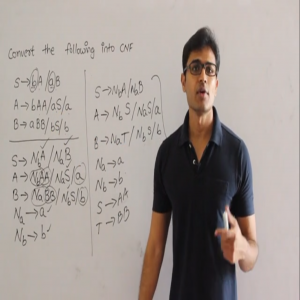 Convert the following into CNF
S→bA/aB
A→bAA/aS/a
B→aBB/bS/b
S→NbA/NaB
A→NbAA/NaS/a
B→NaBB/NbS/b
Na→a
Nb→b
S→NbA/NaB
A→NbS/NaS/a
B→NaT/NbS/b
Na→a
Nb→b
S→AA
T→BB